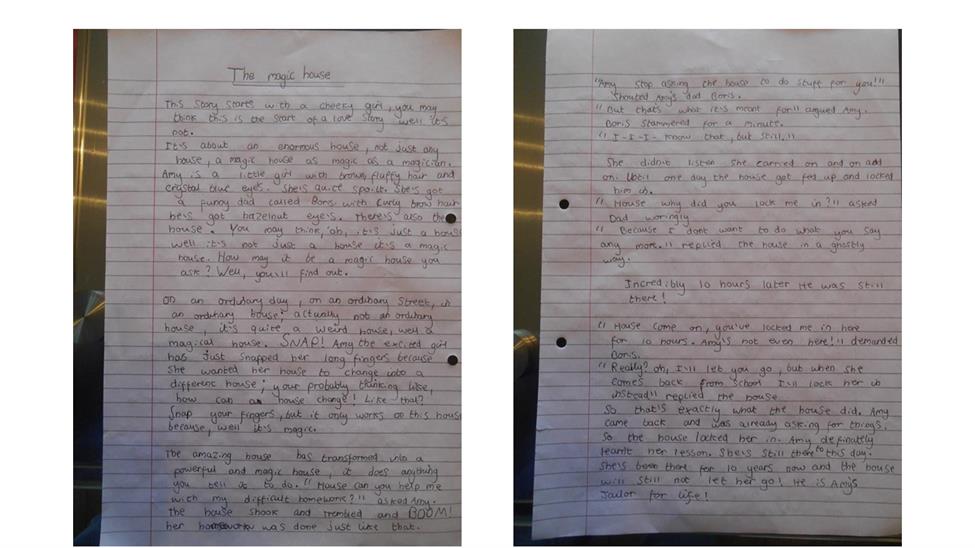 The magic house
This story starts with a cheeky girl, you may
think this is the start of a love story well it's
not.
It's about an enormous house, not just any
house, a magic house as magic as a magician.
Amy is a little girl with brown, fluffy hair and
crystal blue eyes. She's quite spoilt. She's got
a funny dad called Boris with curly brow hair
he's got hazelnut eye's. There's also the
house. You may think, 'oh, it's just a house
well it's not just a house it's a magic
house. How may it be a magic house you
ask? Well, you'll find out.
On an ordinary day, on an ordinary street, in
an ordinary house; actually not an ordinary
house, it's quite a weird house, well a
magical house. SNAP! Amy the excited girl
has just snapped her long fingers because
she wanted her house to change into a
different house; your probably thinking like,
how can a house change! Like that?
Snap your fingers, but it only works on this house
because, well it's magic.
The amazing house has transformed into a
powerful and magic house, it does anything
you tell it to do. "House can you help me
with my difficult homework?" asked Amy.
The house shook and trembled and BOOM!
her homework was done just like that.
"Amy stop asking the house to do stuff for you!"
shouted Amy's dad Boris.
"But that's what it's meant for" argued Amy.
Boris stammered for a minute.
"I-I-I- know that, but still."
She didn't listen she carried on and on add
on. Until one day the house got fed up and locked
him in.
"House why did you lock me in?" asked
Dad woringly
"Because I don't want to do what you say
any more." replied the house in a ghostly
way.
Incredibly 10 hours later He was still
there!
"House come on, you've locked me in here
for 10 hours. Amy's not even here!" demanded
Boris.
"Really? oh, I'll let you go, but when she
comes back from school I'll lock her in
instead" replied the house.
So that's exactly what the house did. Amy
came back and was already asking for things.
So the house locked her in. Amy definatly
learnt her lesson. She's still there to this day.
She's been there for 10 years now and the house
will still not let her go! He is Amy's
Jailor for life!